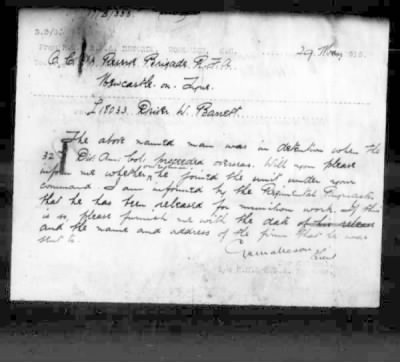 29 May 1916.
O. C. Reserve Brigade R.F.A.
Newcastle-on-Tyne.
L18033. Driver W. Barrett.
The above named man was in detention when the
32nd Div. Am. Col. proceeded overseas. Will you please
inform me whether he joined the unit under your
command. I am informed by the Regimental Paymaster
that he has been released for munition work. If this
is so, please furnish me with the date of his release
and the name and address of the firm that he was
sent to.
Lieut